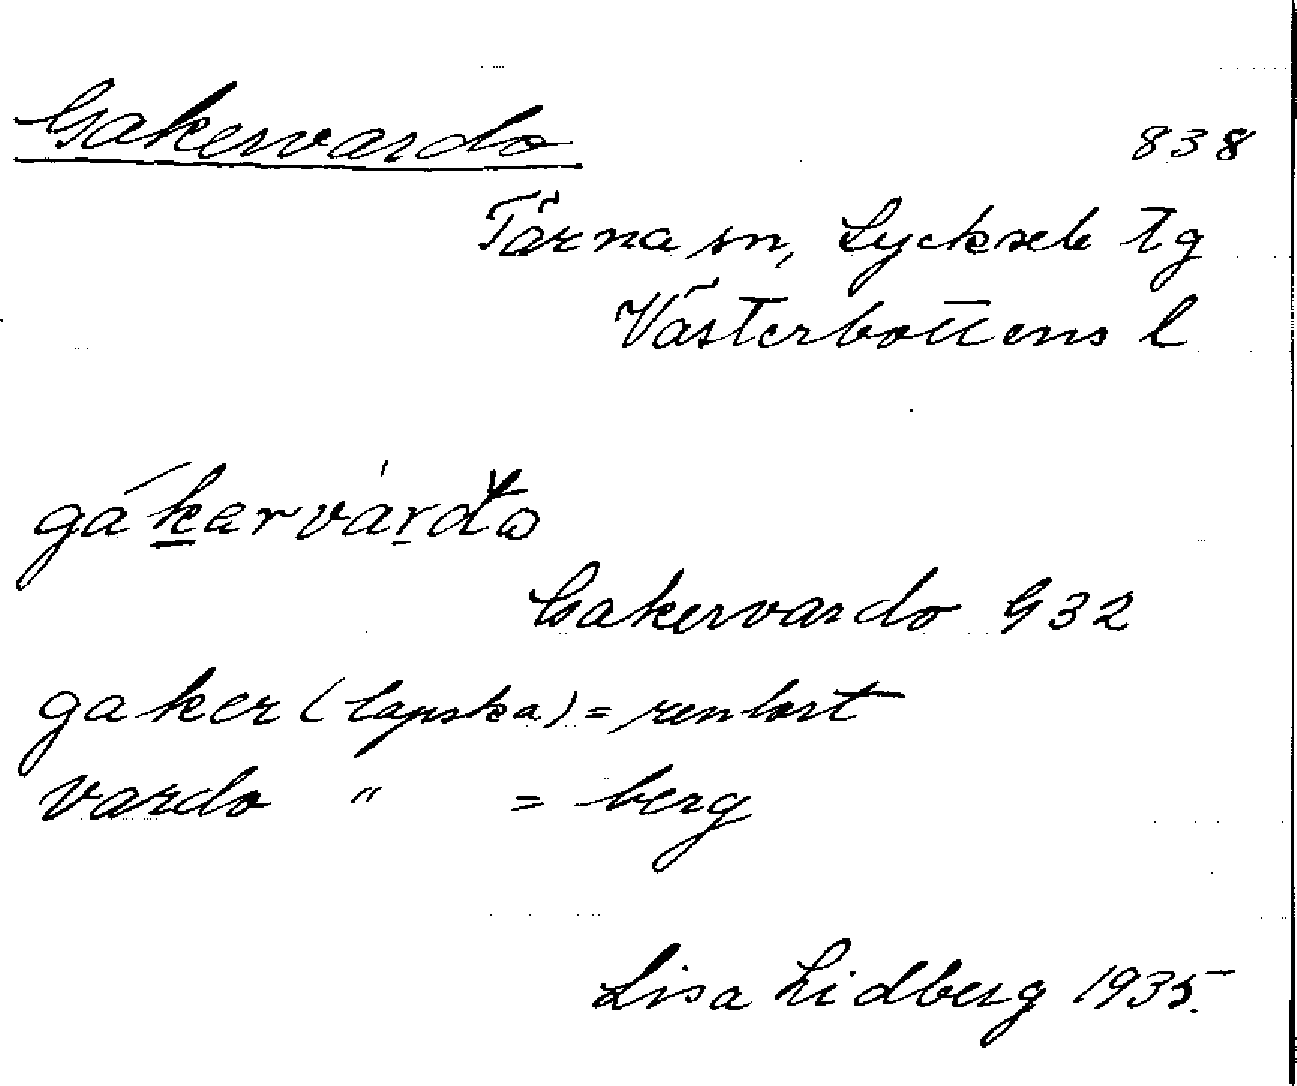 Gakervardo 838
Tärna sn, Lycksele tg
Västerbottens l
gákarvárdo
Gakervardo G32
gaker (lapska) = renbost
vardo " = berg
Lisa Lidberg 1935.